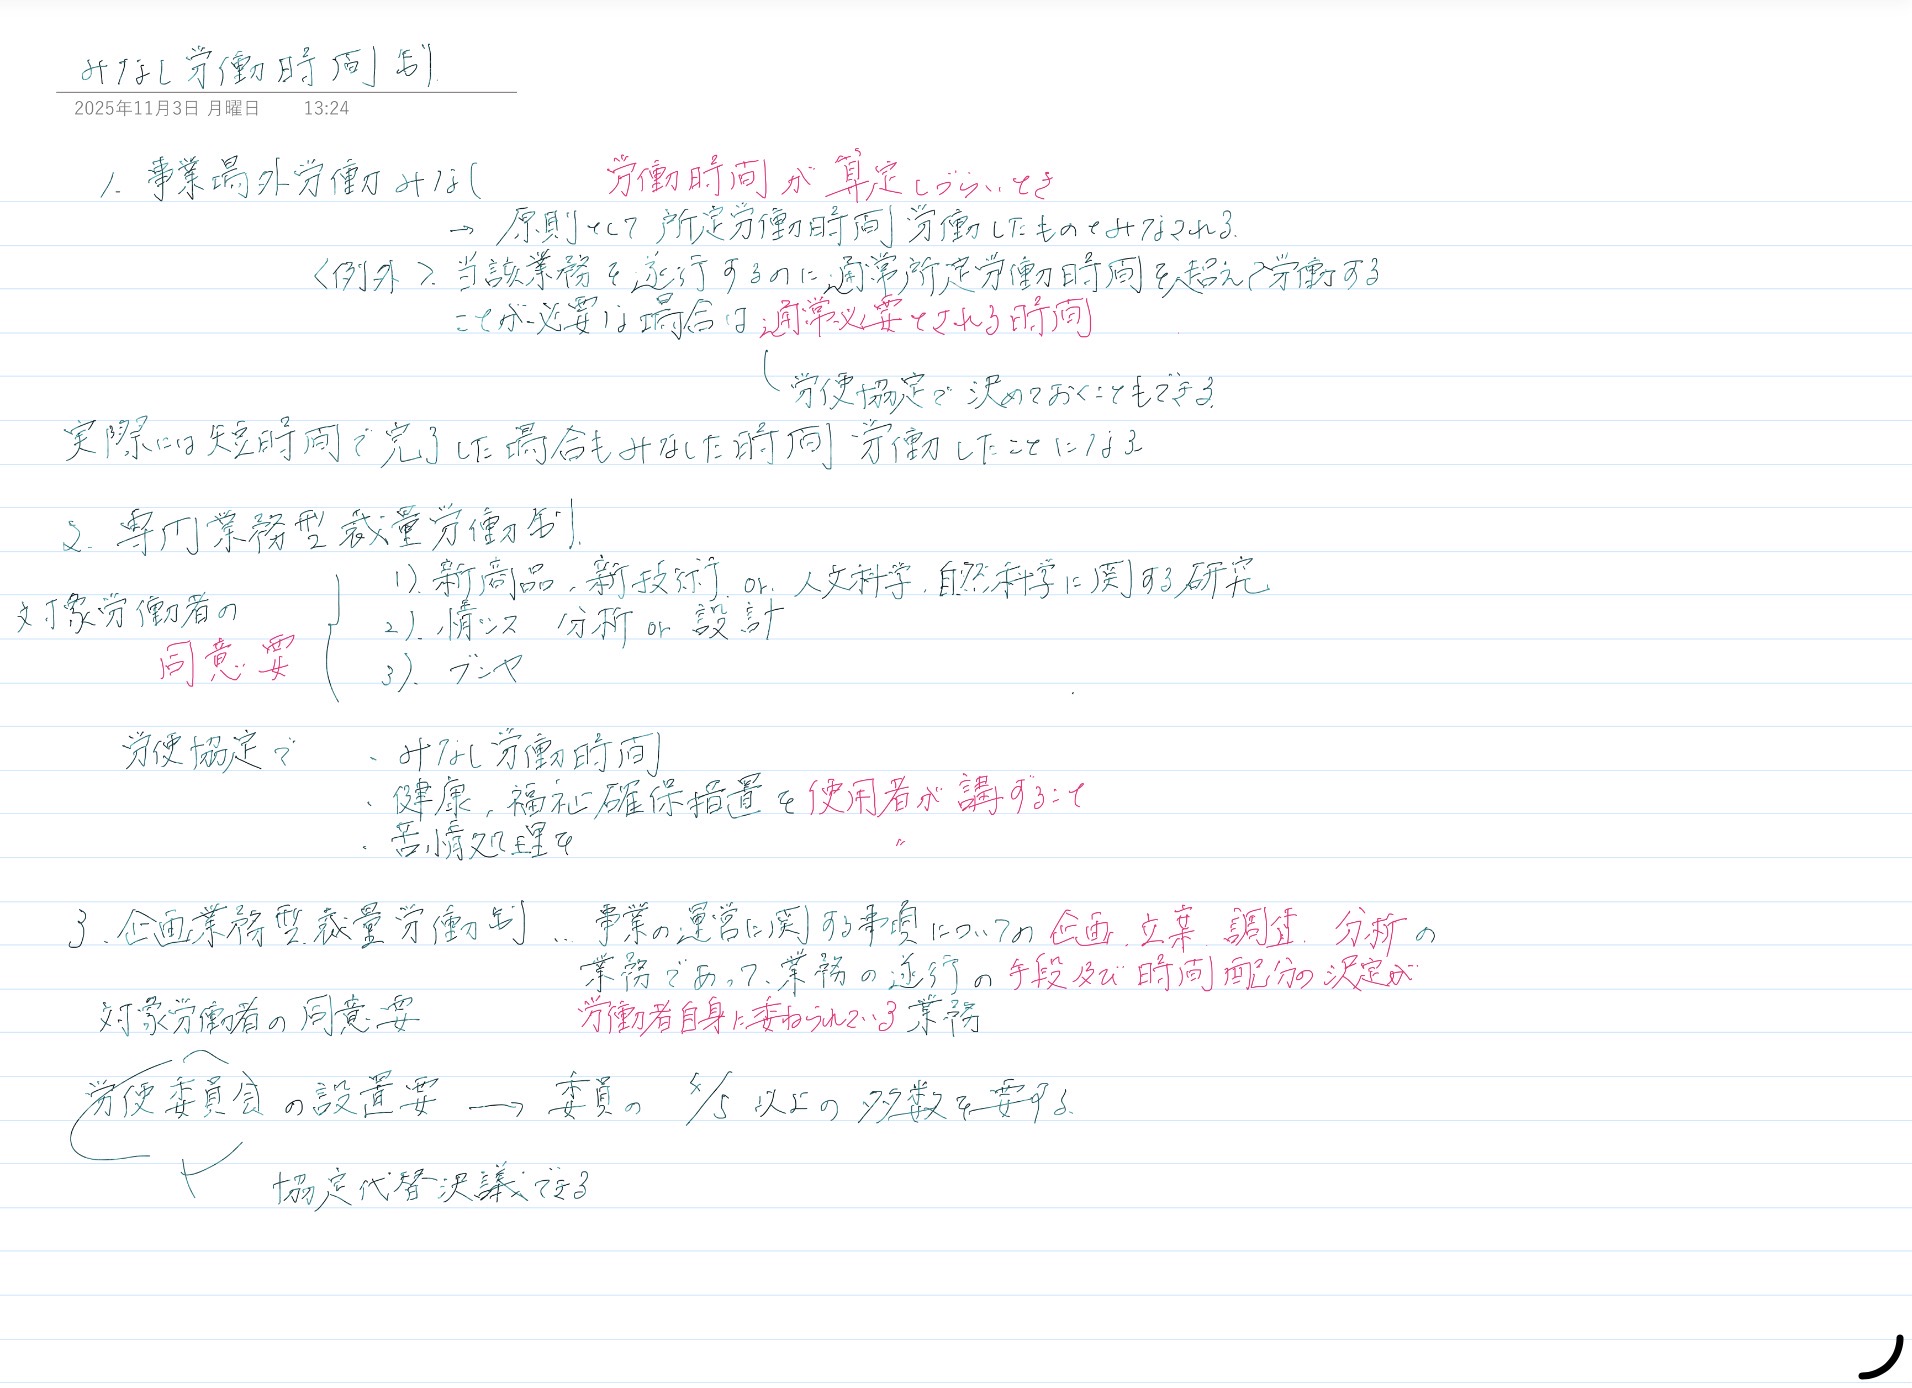 みなし労働時間制
2025年11月3日 月曜日 13:24
1. 事業場外労働みなし 労働時間が算定しづらいとき
→ 原則として所定労働時間労働したものとみなされる.
〈例外〉. 当該業務を遂行するのに通常所定労働時間を超えて労働する
ことが必要な場合は通常必要とされる時間
労使協定で決めておくこともできる.
実際には短時間で完了した場合もみなした時間労働したことになる
2. 専門業務型裁量労働制.
1). 新商品、新技術 or 人文科学、自然科学に関する研究
対象労働者の
2). 情シス 分析 or 設計
同意要
3). ブンヤ
労使協定で ・みなし労働時間
・健康、福祉確保措置を使用者が講ずること
・苦情処理を 〃
3. 企画業務型裁量労働制 … 事業の運営に関する事項についての企画、立案、調査、分析の
業務であって、業務の遂行の手段及び時間配分の決定が
対象労働者の同意要 労働者自身に委ねられている業務
労使委員会の設置要 → 委員の 4/5 以上の多数を要する.
協定代替決議できる